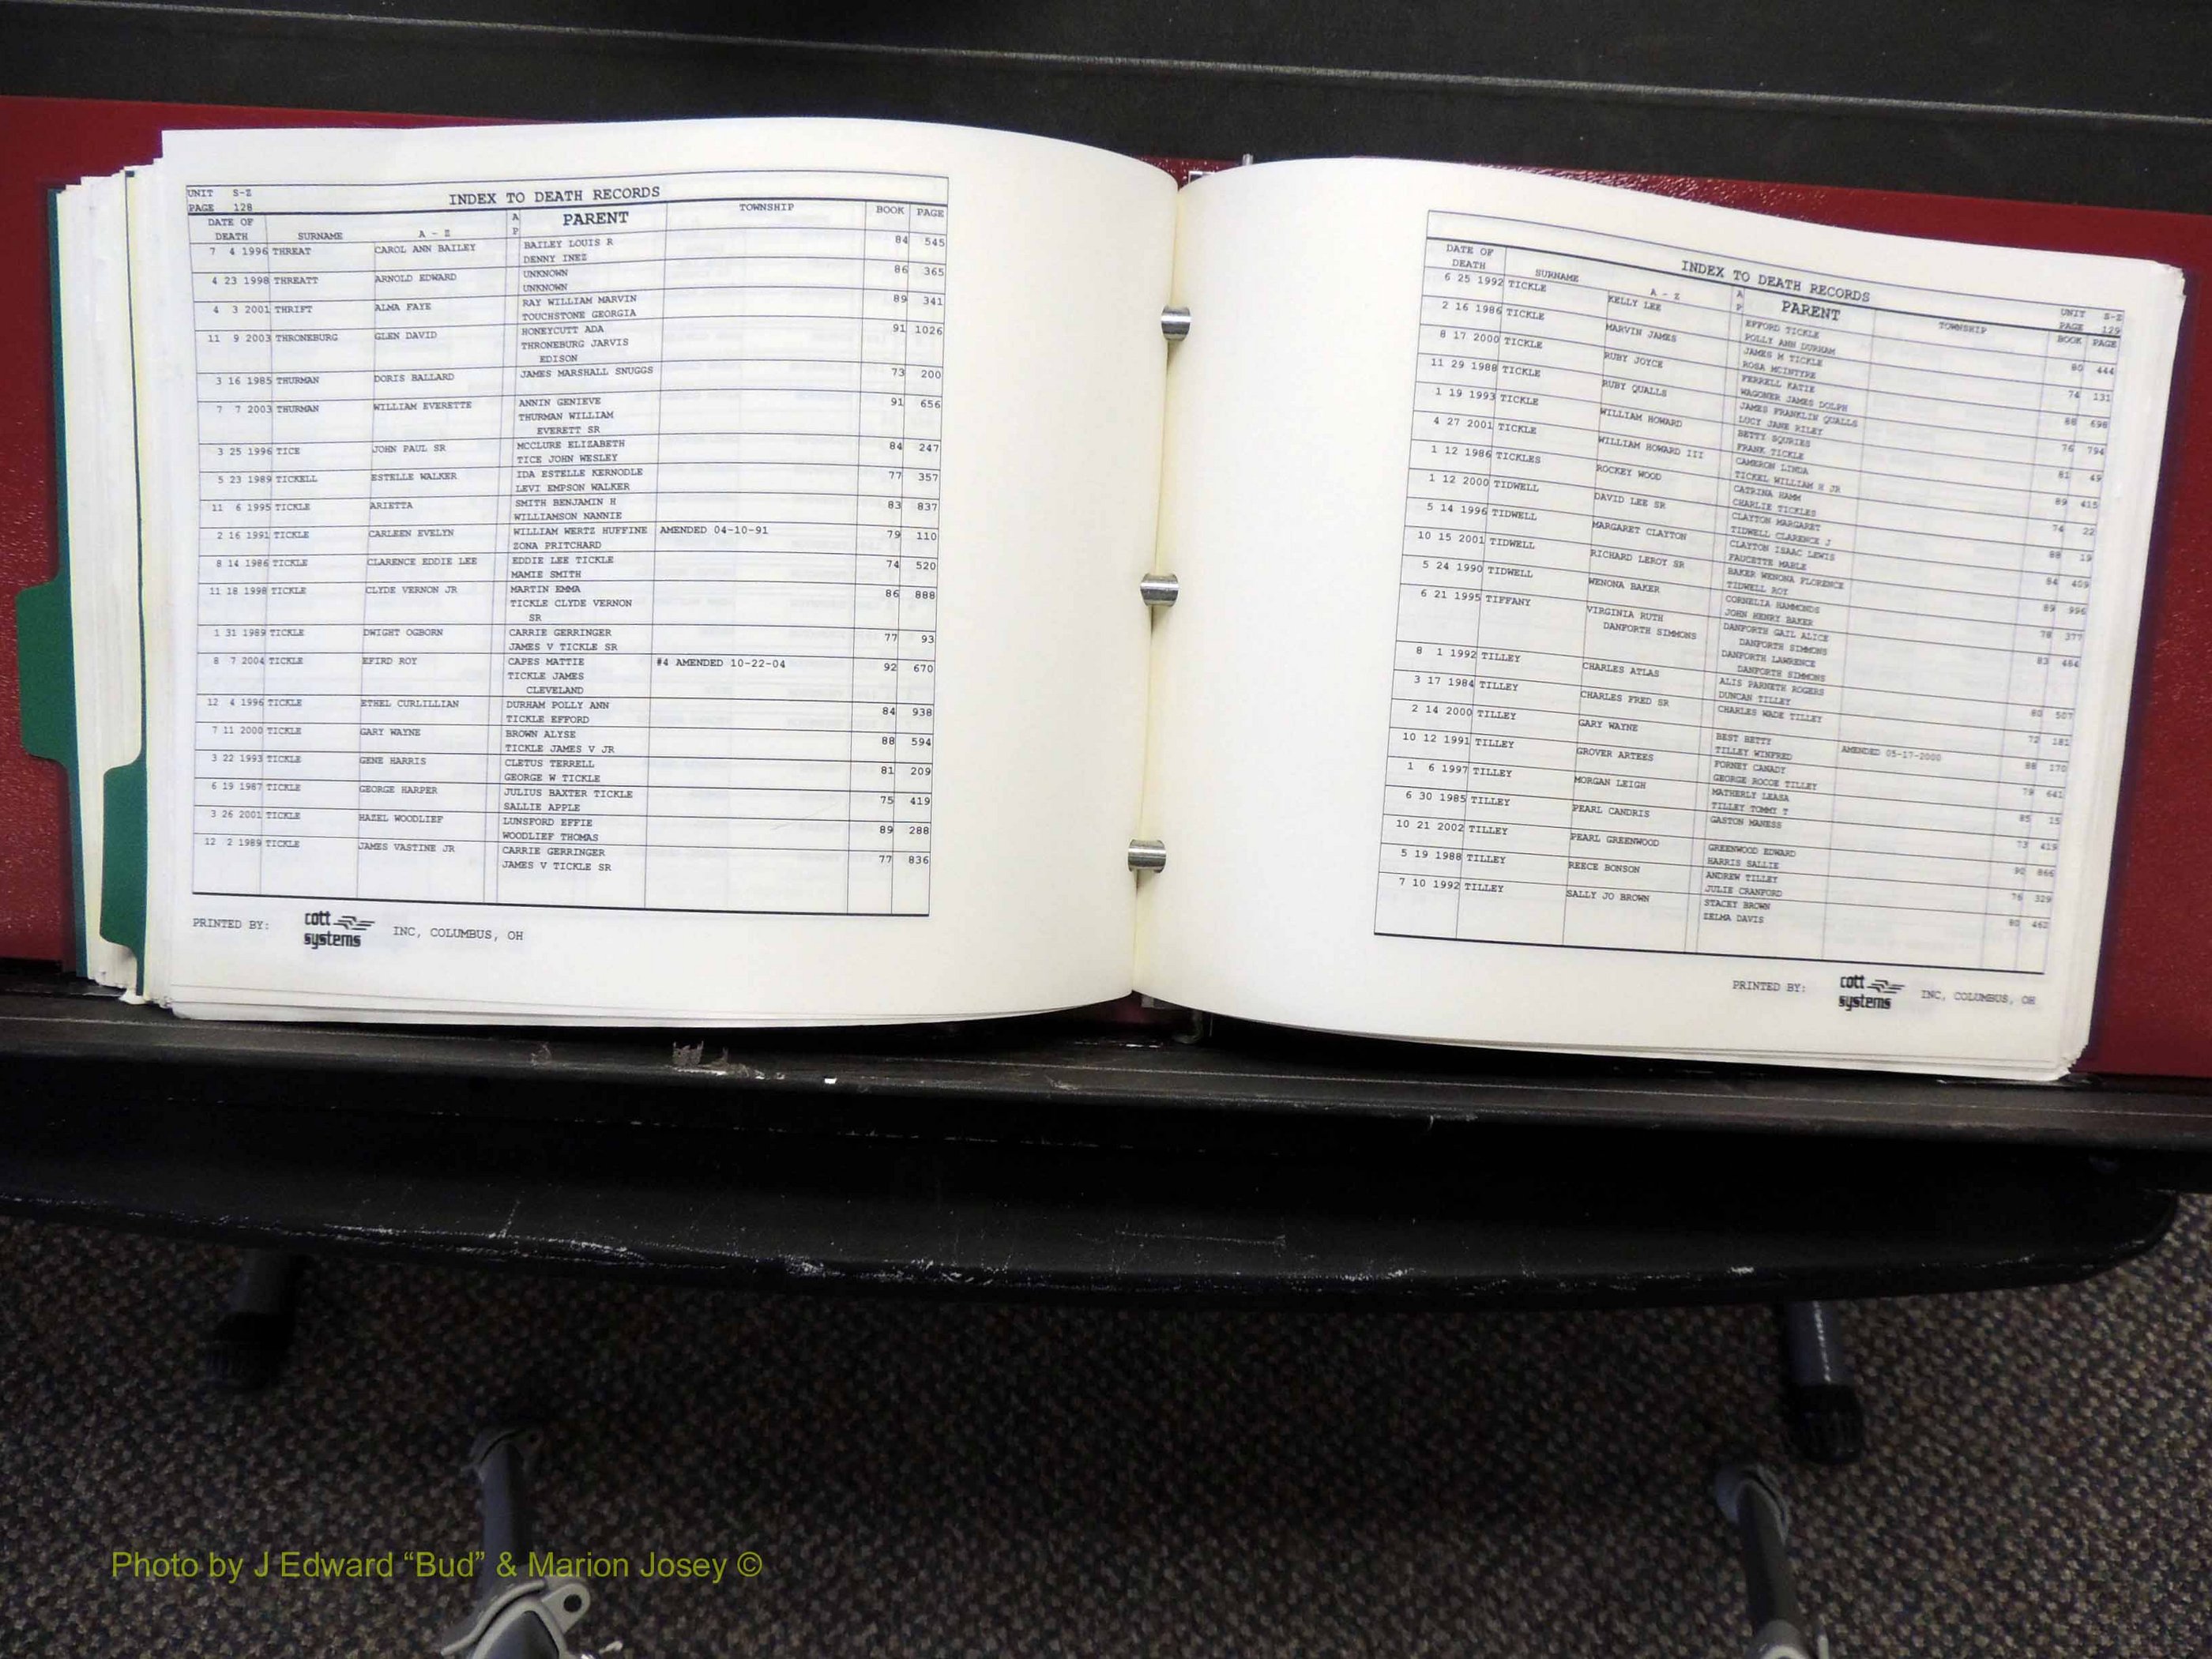 UNIT S-Z
INDEX TO DEATH RECORDS
PAGE 128
DATE OF DEATH SURNAME A - Z A P PARENT TOWNSHIP BOOK PAGE
7 4 1996 THREAT CAROL ANN BAILEY BAILEY LOUIS R 84 545
DENNY INEZ
4 23 1998 THREATT ARNOLD EDWARD UNKNOWN 86 365
UNKNOWN
4 3 2001 THRIFT ALMA FAYE RAY WILLIAM MARVIN 89 341
TOUCHSTONE GEORGIA
11 9 2003 THRONEBURG GLEN DAVID HONEYCUTT ADA 91 1026
THRONEBURG JARVIS
EDISON
3 16 1985 THURMAN DORIS BALLARD JAMES MARSHALL SNUGGS 73 200
7 7 2003 THURMAN WILLIAM EVERETTE ANNIN GENIEVE 91 656
THURMAN WILLIAM
EVERETT SR
3 25 1996 TICE JOHN PAUL SR MCCLURE ELIZABETH 84 247
TICE JOHN WESLEY
5 23 1989 TICKELL ESTELLE WALKER IDA ESTELLE KERNODLE 77 357
LEVI EMPSON WALKER
11 6 1995 TICKLE ARIETTA SMITH BENJAMIN H 83 837
WILLIAMSON NANNIE
2 16 1991 TICKLE CARLEEN EVELYN WILLIAM WERTZ HUFFINE AMENDED 04-10-91 79 110
ZONA PRITCHARD
8 14 1986 TICKLE CLARENCE EDDIE LEE EDDIE LEE TICKLE 74 520
MAMIE SMITH
11 18 1998 TICKLE CLYDE VERNON JR MARTIN EMMA 86 888
TICKLE CLYDE VERNON
SR
1 31 1989 TICKLE DWIGHT OGBORN CARRIE GERRINGER 77 93
JAMES V TICKLE SR
8 7 2004 TICKLE EFIRD ROY CAPES MATTIE #4 AMENDED 10-22-04 92 670
TICKLE JAMES
CLEVELAND
12 4 1996 TICKLE ETHEL CURLILLIAN DURHAM POLLY ANN 84 938
TICKLE EFFORD
7 11 2000 TICKLE GARY WAYNE BROWN ALYSE 88 594
TICKLE JAMES V JR
3 22 1993 TICKLE GENE HARRIS CLETUS TERRELL 81 209
GEORGE W TICKLE
6 19 1987 TICKLE GEORGE HARPER JULIUS BAXTER TICKLE 75 419
SALLIE APPLE
3 26 2001 TICKLE HAZEL WOODLIEF LUNSFORD EFFIE 89 288
WOODLIEF THOMAS
12 2 1989 TICKLE JAMES VASTINE JR CARRIE GERRINGER 77 836
JAMES V TICKLE SR
PRINTED BY: cott systems INC, COLUMBUS, OH
INDEX TO DEATH RECORDS
UNIT S-Z
PAGE 129
DATE OF DEATH SURNAME A - Z A P PARENT TOWNSHIP BOOK PAGE
6 25 1992 TICKLE KELLY LEE EFFORD TICKLE 80 444
POLLY ANN DURHAM
2 16 1986 TICKLE MARVIN JAMES JAMES M TICKLE 74 131
ROSA MCINTYRE
8 17 2000 TICKLE RUBY JOYCE FERRELL KATIE 88 698
WAGONER JAMES DOLPH
11 29 1988 TICKLE RUBY QUALLS JAMES FRANKLIN QUALLS 76 794
LUCY JANE RILEY
1 19 1993 TICKLE WILLIAM HOWARD BETTY SQURIES 81 49
FRANK TICKLE
4 27 2001 TICKLE WILLIAM HOWARD III CAMERON LINDA 89 415
TICKEL WILLIAM H JR
1 12 1986 TICKLES ROCKEY WOOD CATRINA HAMM 74 22
CHARLIE TICKLES
1 12 2000 TIDWELL DAVID LEE SR CLAYTON MARGARET 88 19
TIDWELL CLARENCE J
5 14 1996 TIDWELL MARGARET CLAYTON CLAYTON ISAAC LEWIS 84 409
FAUCETTE MABLE
10 15 2001 TIDWELL RICHARD LEROY SR BAKER WENONA FLORENCE 89 996
TIDWELL ROY
5 24 1990 TIDWELL WENONA BAKER CORNELIA HAMMONDS 78 377
JOHN HENRY BAKER
6 21 1995 TIFFANY VIRGINIA RUTH DANFORTH GAIL ALICE 83 484
DANFORTH SIMMONS DANFORTH SIMMONS
DANFORTH LAWRENCE
DANFORTH SIMMONS
8 1 1992 TILLEY CHARLES ATLAS ALIS PARNETH ROGERS 80 507
DUNCAN TILLEY
3 17 1984 TILLEY CHARLES FRED SR CHARLES WADE TILLEY 72 181
2 14 2000 TILLEY GARY WAYNE BEST BETTY AMENDED 05-17-2000 88 170
TILLEY WINFRED
10 12 1991 TILLEY GROVER ARTEES FORNEY CANADY 79 641
GEORGE ROCOE TILLEY
1 6 1997 TILLEY MORGAN LEIGH MATHERLY LEASA 85 15
TILLEY TOMMY T
6 30 1985 TILLEY PEARL CANDRIS GASTON MANESS 73 419
10 21 2002 TILLEY PEARL GREENWOOD GREENWOOD EDWARD 90 866
HARRIS SALLIE
5 19 1988 TILLEY REECE BONSON ANDREW TILLEY 76 329
JULIE CRANFORD
7 10 1992 TILLEY SALLY JO BROWN STACEY BROWN 80 462
ZELMA DAVIS
PRINTED BY: cott systems INC, COLUMBUS, OH
Photo by J Edward “Bud” & Marion Josey ©